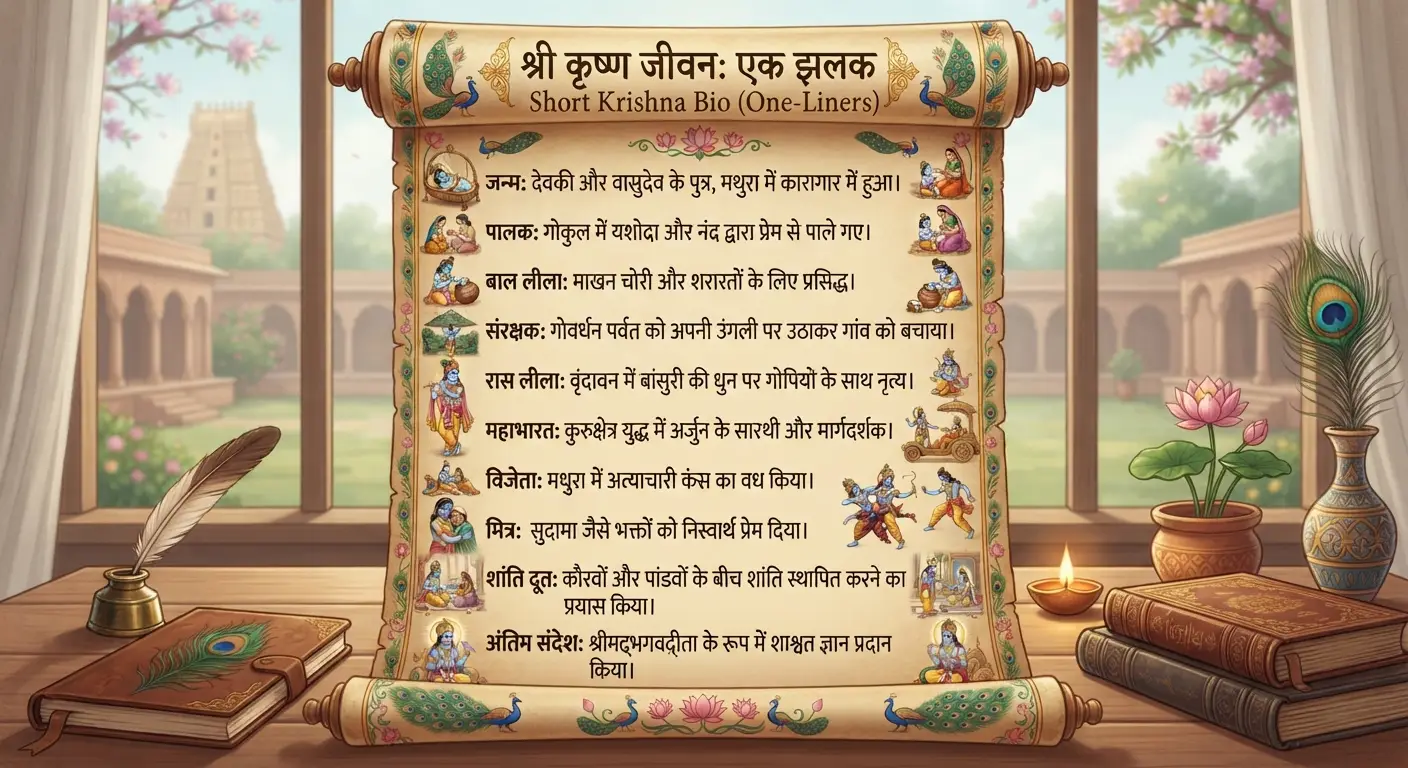 श्री कृष्ण जीवन: एक झलक
Short Krishna Bio (One-Liners)
जन्म: देवकी और वासुदेव के पुत्र, मथुरा में कारागार में हुआ।
पालक: गोकुल में यशोदा और नंद द्वारा प्रेम से पाले गए।
बाल लीला: माखन चोरी और शरारतों के लिए प्रसिद्ध।
संरक्षक: गोवर्धन पर्वत को अपनी उंगली पर उठाकर गांव को बचाया।
रास लीला: वृंदावन में बांसुरी की धुन पर गोपियों के साथ नृत्य।
महाभारत: कुरुक्षेत्र युद्ध में अर्जुन के सारथी और मार्गदर्शक।
विजेता: मथुरा में अत्याचारी कंस का वध किया।
मित्र: सुदामा जैसे भक्तों को निस्वार्थ प्रेम दिया।
शांति दूत: कौरवों और पांडवों के बीच शांति स्थापित करने का
प्रयास किया।
अंतिम संदेश: श्रीमद्भगवद्गीता के रूप में शाश्वत ज्ञान प्रदान
किया।